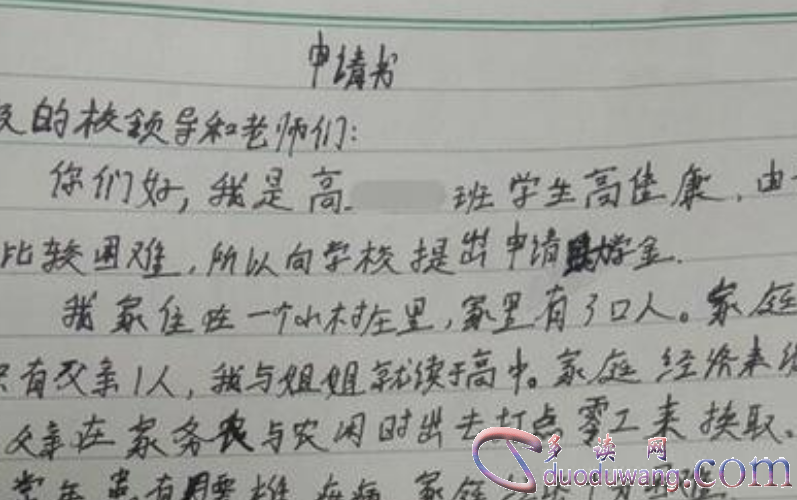 申请书
的校领导和老师们:
你们好,我是高 班学生高佳康,由
比较困难,所以向学校提出申请助学金.
我家住在一个小村庄里,家里有3口人。家庭
只有父亲1人,我与姐姐就读于高中。家庭经济来
父亲在家务农与农闲时出去打点零工来换取。
常年患有腰椎疾病,家庭
多读网
duoduwang.com